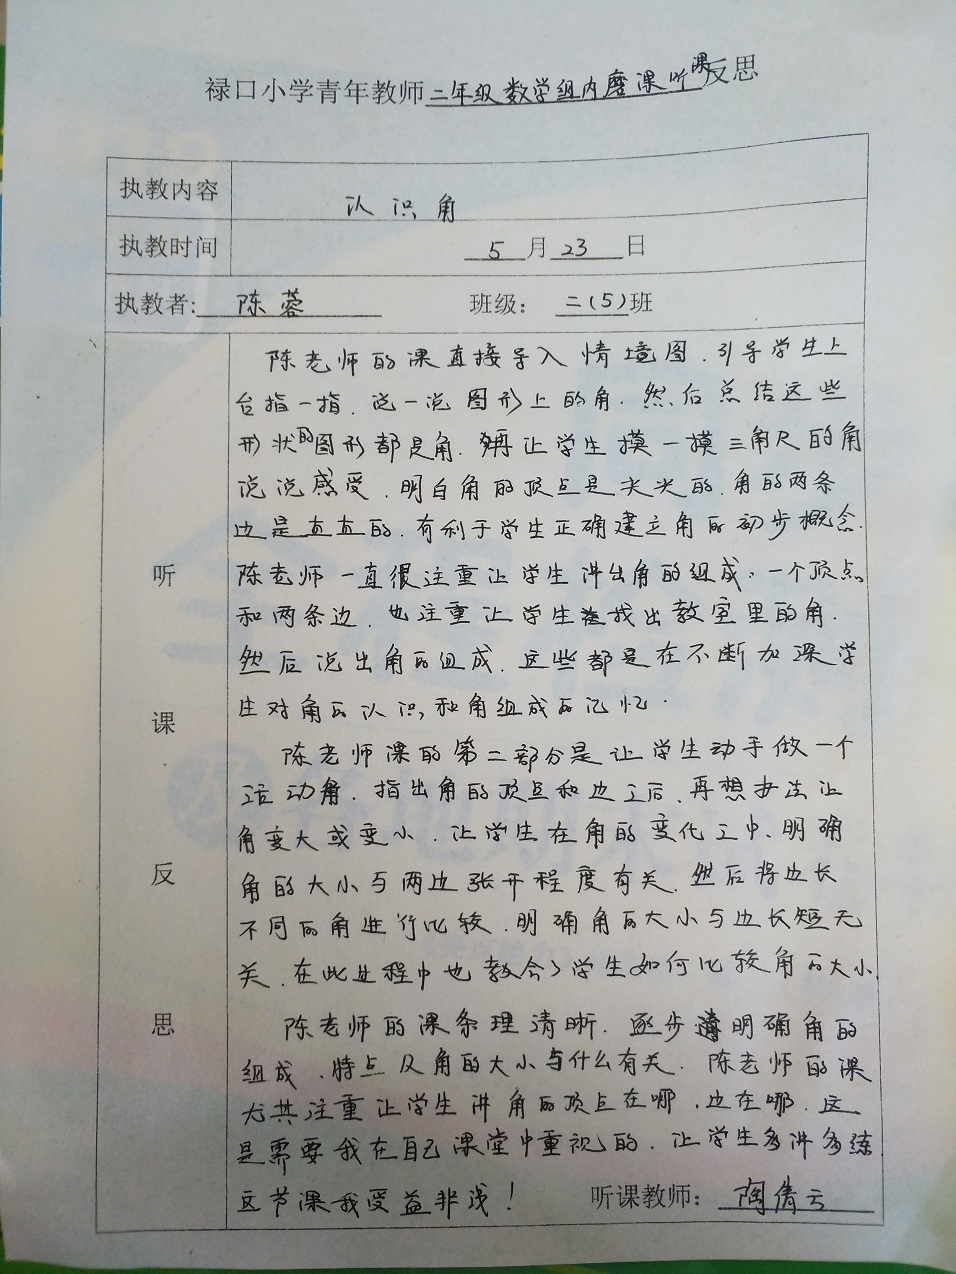 禄口小学青年教师二年级数学组内磨课听课反思
执教内容 认识角
执教时间 5月23日
执教者: 陈蓉 班级: 二(5)班
陈老师的课直接导入情境图.引导学生上
台指一指.说一说图形上的角.然后总结这些
形状的图形都是角.再让学生摸一摸三角尺的角
说说感受.明白角的顶点是尖尖的.角的两条
边是直直的.有利于学生正确建立角的初步概念.
陈老师一直很注重让学生讲出角的组成.一个顶点
和两条边.也注重让学生找出教室里的角.
然后说出角的组成.这些都是在不断加深学
生对角的认识,和角组成的记忆.
陈老师课的第二部分是让学生动手做一个
活动角.指出角的顶点和边之后.再想办法让
角变大或变小.让学生在角的变化之中.明确
角的大小与两边张开程度有关.然后将边长
不同的角进行比较.明确角的大小与边长短无
关.在此过程中也教会了学生如何比较角的大小
陈老师的课条理清晰.逐步明确角的
组成.特点及角的大小与什么有关.陈老师的课
尤其注重让学生讲角的顶点在哪.边在哪.这
是需要我在自己课堂中重视的.让学生多讲多练
这节课我受益非浅!
听课教师: 陶倩云
听
课
反
思